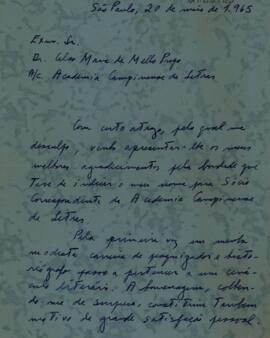 São Paulo, 20 de maio de 1.965
Exmo. Sr.
Dr. Celso Maria de Mello Pupo
A/c. Academia Campinense de Letras
Com certo atrazo, pelo qual me
desculpo, venho apresentar-lhe os meus
melhores agradecimentos pela bondade que
teve de indicar o meu nome para Sócio
Correspondente da Academia Campinense
de Letras.
Pela primeira vez em minha
modesta carreira de pesquizador e histo-
riógrafo passo a pertencer a um cená-
culo literário. A homenagem, colhen-
do-me de surpresa, constitue também
motivo de grande satisfação pessoal.